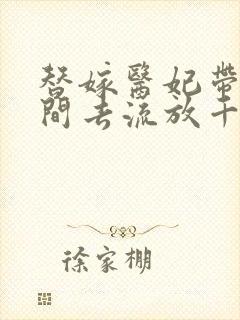 替嫁醫妃帶
間去流放十
徐家棚